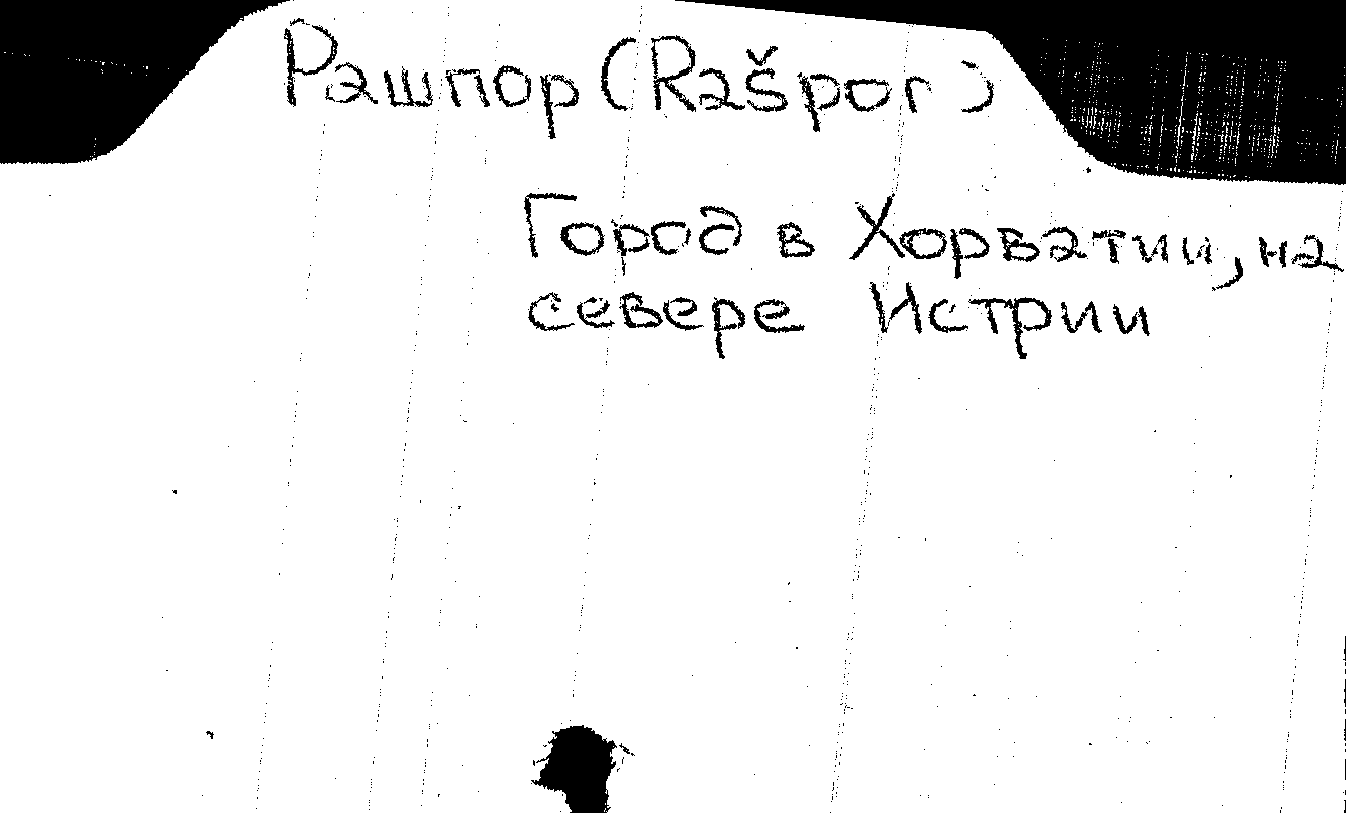 Рашпор (Rašpor)
Город в Хорватии, на
севере Истрии